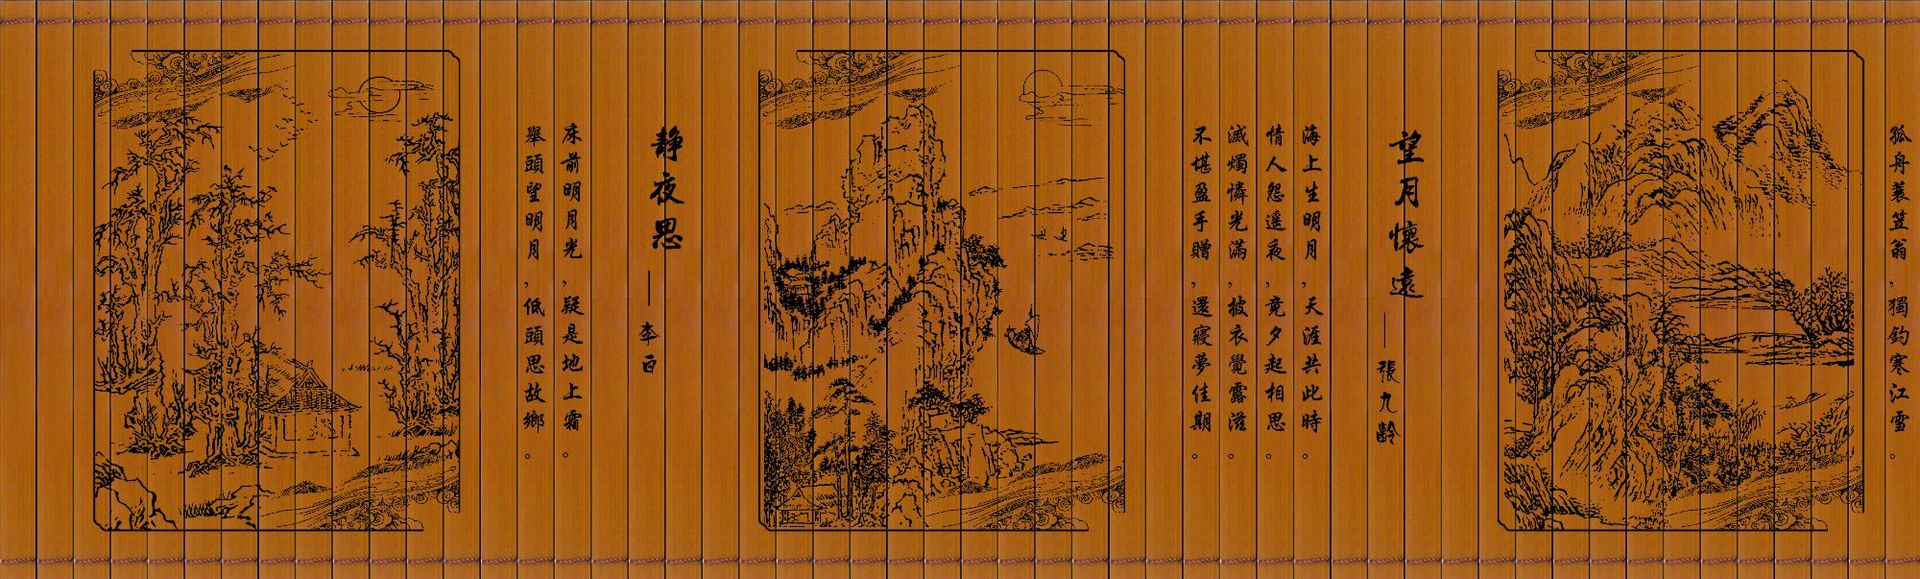 孤舟蓑笠翁,獨釣寒江雪。
望月懷遠——張九齡
海上生明月,天涯共此時。
情人怨遥夜,竟夕起相思。
滅燭憐光滿,披衣覺露滋。
不堪盈手贈,還寢夢佳期。
靜夜思——李白
床前明月光,疑是地上霜。
舉頭望明月,低頭思故鄉。